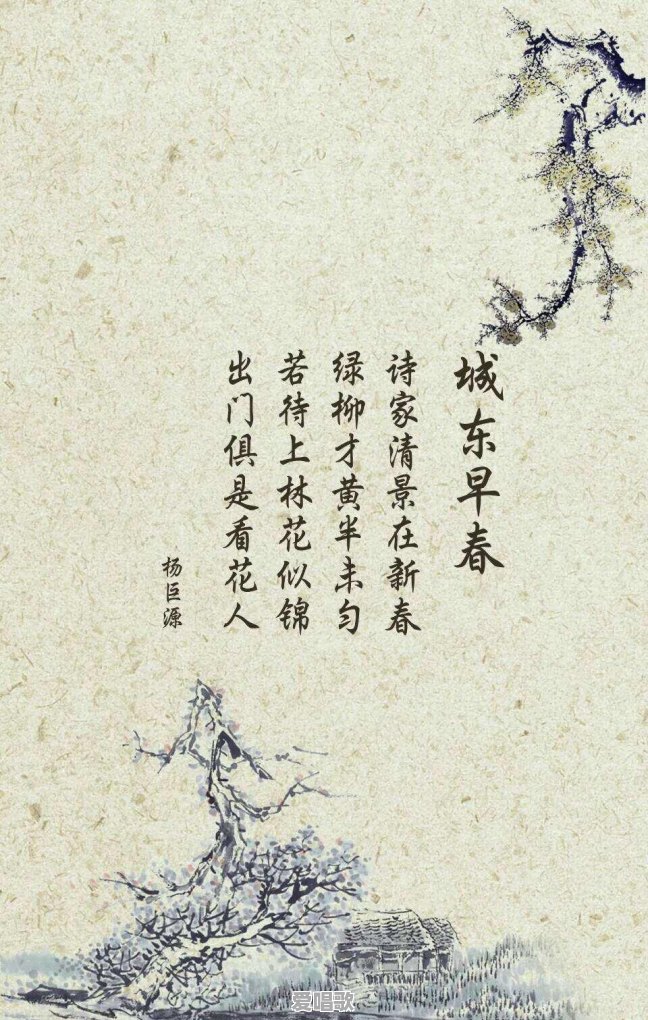 城东早春
诗家清景在新春
绿柳才黄半未匀
若待上林花似锦
出门俱是看花人
杨巨源
爱唱歌